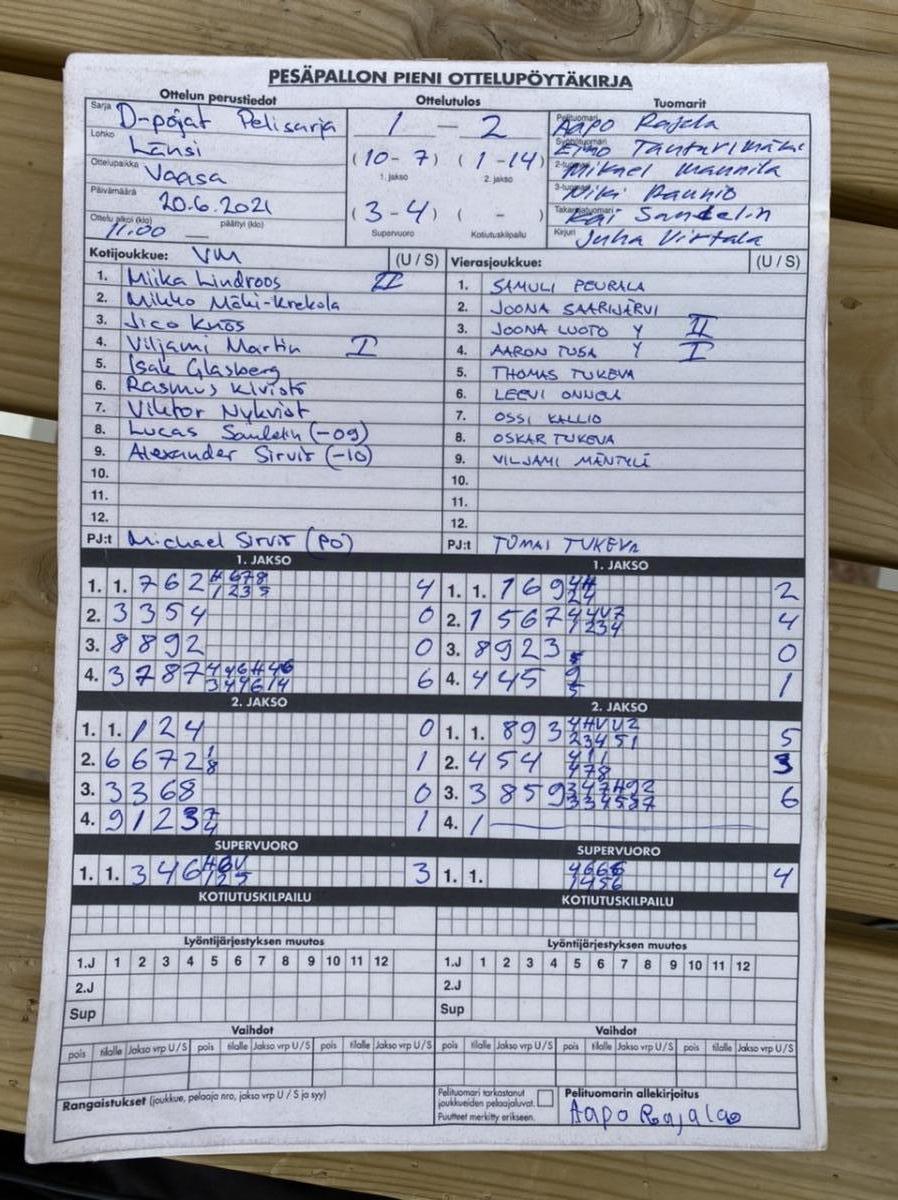 PESÄPALLON PIENI OTTELUPÖYTÄKIRJA
Ottelun perustiedot
Sarja D-pojat Pelisarja
Lohko Länsi
Ottelupaikka Vaasa
Päivämäärä 20.6.2021
Ottelu alkoi (klo) 11.00 päättyi (klo)
Ottelutulos
1 — 2
(10 - 7) (1 - 14)
1. jakso 2. jakso
(3 - 4) ( - )
Supervuoro Kotiutuskilpailu
Tuomarit
Pelituomari Aapo Rajala
Syöttötuomari
2-tuomari Mikael Mannila
3-tuomari Miki Paunio
Takarajatuomari Kai Sandelin
Kirjuri Juha Virtala
Kotijoukkue: VM (U / S)
1. Miika Lindroos II
2. Mikko Mäki-Krekola
3. Jico Knos
4. Viljami Martin I
5. Isak Glasberg
6. Rasmus Kivistö
7. Viktor Nykvist
8. Lucas (-09)
9. Alexander Sirvit (-10)
10.
11.
12.
PJ:t Michael Sirvit (PO)
Vierasjoukkue: (U / S)
1. SAMULI PEURALA
2. JOONA SAARIJÄRVI
3. JOONA LUOTO Y II
4. AARON TUSA Y I
5. THOMAS TUKEVA
6. LEEVI ONNELA
7. OSSI KALLIO
8. OSKAR TUKEVA
9. VILJAMI MÄNTYLÄ
10.
11.
12.
PJ:t TUKEVA
1. JAKSO
1. 1. 7 6 2 4
2. 3 3 5 4 0
3. 8 8 9 2 0
4. 3 7 8 7 6
1. JAKSO
1. 1. 1 6 9 2
2. 1 5 6 7 4
3. 8 9 2 3 0
4. 4 4 5 1
2. JAKSO
1. 1. 1 2 4 0
2. 6 6 7 2 1
3. 3 3 6 8 0
4. 9 1 2 3 1
2. JAKSO
1. 1. 8 9 3 5
2. 4 5 4 3
3. 3 8 5 9 6
4. 1
SUPERVUORO
1. 1. 3 4 6 3
SUPERVUORO
1. 1. 4
KOTIUTUSKILPAILU
KOTIUTUSKILPAILU
Lyöntijärjestyksen muutos
1.J 1 2 3 4 5 6 7 8 9 10 11 12
2.J
Sup
Lyöntijärjestyksen muutos
1.J 1 2 3 4 5 6 7 8 9 10 11 12
2.J
Sup
Vaihdot
pois tilalle Jakso vrp U / S pois tilalle Jakso vrp U / S pois tilalle Jakso vrp U / S
Vaihdot
pois tilalle Jakso vrp U / S pois tilalle Jakso vrp U / S pois tilalle Jakso vrp U / S
Rangaistukset (joukkue, pelaaja nro, jakso vrp U / S ja syy)
Pelituomari tarkastanut
joukkueiden pelaajaluvat.
Puutteet merkitty erikseen.
Pelituomarin allekirjoitus
Aapo Rajala